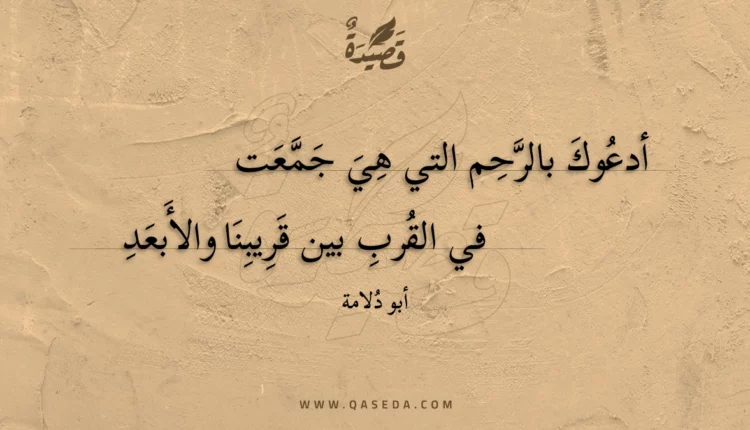 قَصِيدَةٌ
أدعُوكَ بالرَّحِم التي هِيَ جَمَّعَت
في القُربِ بين قَرِيبِنَا والأَبعَدِ
أبو دُلامة
WWW.QASEDA.COM